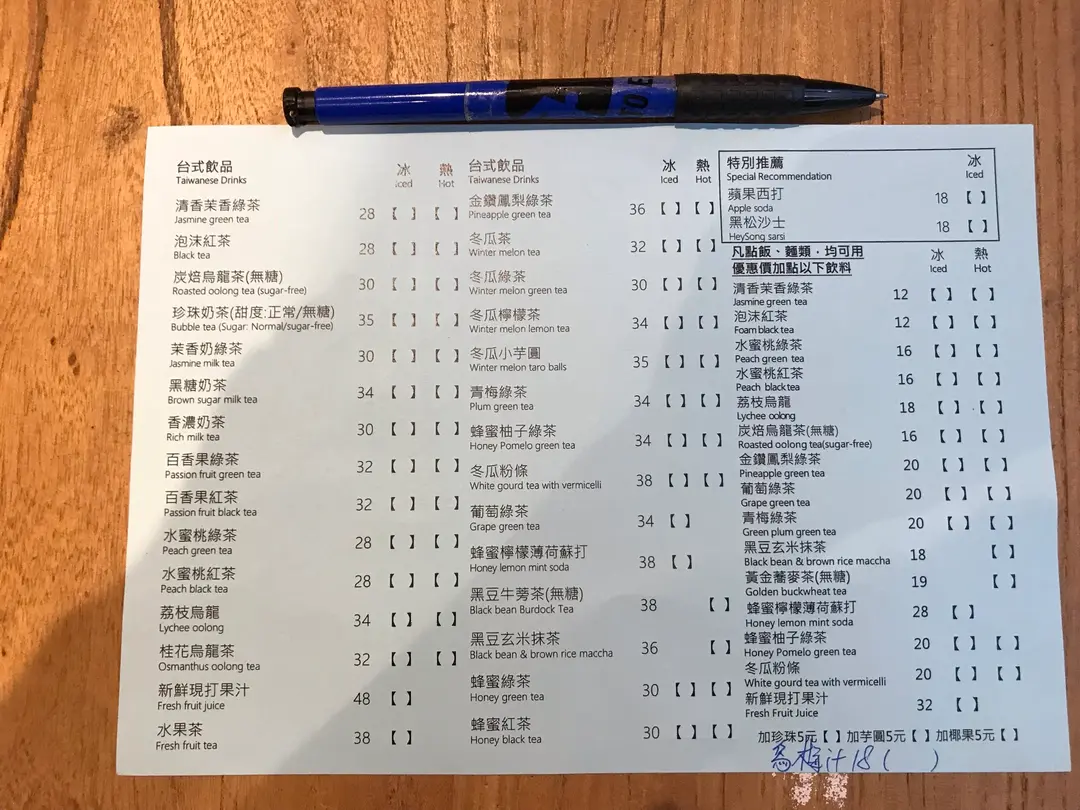 台式飲品 冰 熱
Taiwanese Drinks Iced Hot
清香茉香綠茶 28 【 】 【 】
Jasmine green tea
泡沫紅茶 28 【 】 【 】
Black tea
炭焙烏龍茶(無糖) 30 【 】 【 】
Roasted oolong tea (sugar-free)
珍珠奶茶(甜度:正常/無糖) 35 【 】 【 】
Bubble tea (Sugar: Normal/sugar-free)
茉香奶綠茶 30 【 】 【 】
Jasmine milk tea
黑糖奶茶 34 【 】 【 】
Brown sugar milk tea
香濃奶茶 30 【 】 【 】
Rich milk tea
百香果綠茶 32 【 】 【 】
Passion fruit green tea
百香果紅茶 32 【 】 【 】
Passion fruit black tea
水蜜桃綠茶 28 【 】 【 】
Peach green tea
水蜜桃紅茶 28 【 】 【 】
Peach black tea
荔枝烏龍 34 【 】 【 】
Lychee oolong
桂花烏龍茶 32 【 】 【 】
Osmanthus oolong tea
新鮮現打果汁 48 【 】
Fresh fruit juice
水果茶 38 【 】
Fresh fruit tea
台式飲品 冰 熱
Taiwanese Drinks Iced Hot
金鑽鳳梨綠茶 36 【 】 【 】
Pineapple green tea
冬瓜茶 32 【 】 【 】
Winter melon tea
冬瓜綠茶 30 【 】 【 】
Winter melon green tea
冬瓜檸檬茶 34 【 】 【 】
Winter melon lemon tea
冬瓜小芋圓 35 【 】 【 】
Winter melon taro balls
青梅綠茶 34 【 】 【 】
Plum green tea
蜂蜜柚子綠茶 34 【 】 【 】
Honey Pomelo green tea
冬瓜粉條 38 【 】 【 】
White gourd tea with vermicelli
葡萄綠茶 34 【 】
Grape green tea
蜂蜜檸檬薄荷蘇打 38 【 】
Honey lemon mint soda
黑豆牛蒡茶(無糖) 38 【 】
Black bean Burdock Tea
黑豆玄米抹茶 36 【 】
Black bean & brown rice maccha
蜂蜜綠茶 30 【 】 【 】
Honey green tea
蜂蜜紅茶 30 【 】 【 】
Honey black tea
特別推薦 冰
Special Recommendation Iced
蘋果西打 18 【 】
Apple soda
黑松沙士 18 【 】
HeySong sarsi
凡點飯、麵類，均可用 冰 熱
優惠價加點以下飲料 Iced Hot
清香茉香綠茶 12 【 】 【 】
Jasmine green tea
泡沫紅茶 12 【 】 【 】
Foam black tea
水蜜桃綠茶 16 【 】 【 】
Peach green tea
水蜜桃紅茶 16 【 】 【 】
Peach black tea
荔枝烏龍 18 【 】 【 】
Lychee oolong
炭焙烏龍茶(無糖) 16 【 】 【 】
Roasted oolong tea(sugar-free)
金鑽鳳梨綠茶 20 【 】 【 】
Pineapple green tea
葡萄綠茶 20 【 】 【 】
Grape green tea
青梅綠茶 20 【 】 【 】
Green plum green tea
黑豆玄米抹茶 18 【 】
Black bean & brown rice maccha
黃金蕎麥茶(無糖) 19 【 】
Golden buckwheat tea
蜂蜜檸檬薄荷蘇打 28 【 】
Honey lemon mint soda
蜂蜜柚子綠茶 20 【 】 【 】
Honey Pomelo green tea
冬瓜粉條 20 【 】 【 】
White gourd tea with vermicelli
新鮮現打果汁 32 【 】
Fresh Fruit Juice
加珍珠5元【 】加芋圓5元【 】加椰果5元【 】
烏梅汁 18 ( )